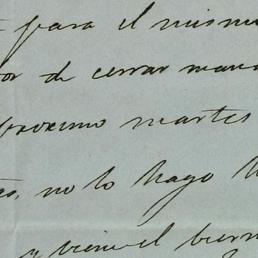 para el mismo
de cerrar
proximo martes
no lo hago
y viene el